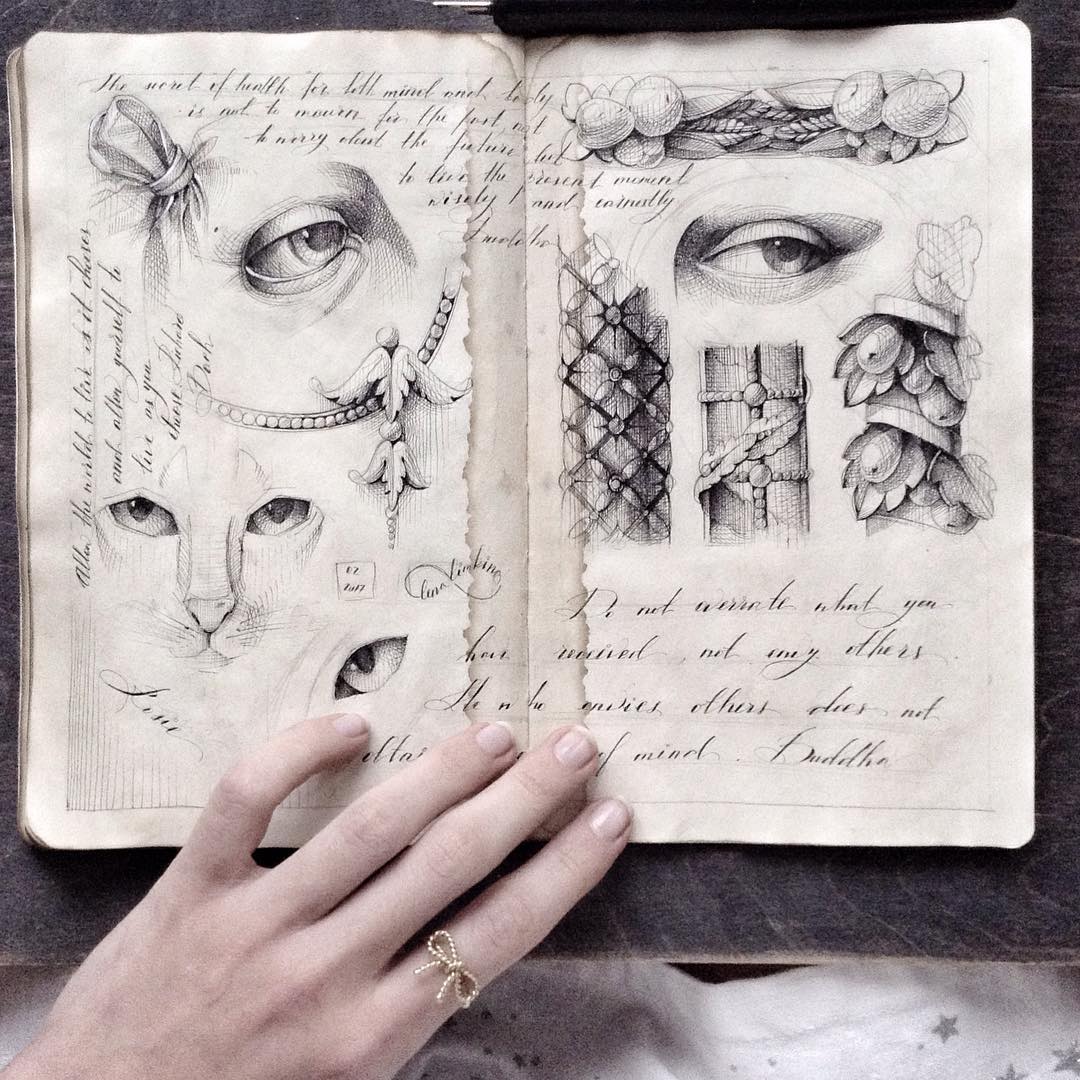 The secret of health for both mind and body
is not to mourn for the past, not
to worry about the future, but
to live the present moment
wisely and earnestly
Buddha
Allow the world to live as it chooses
and allow yourself to
live as you
choose Richard
Bach
02
2017
Do not overrate what you
have received, not envy others.
He who envies others does not
of mind. Buddha